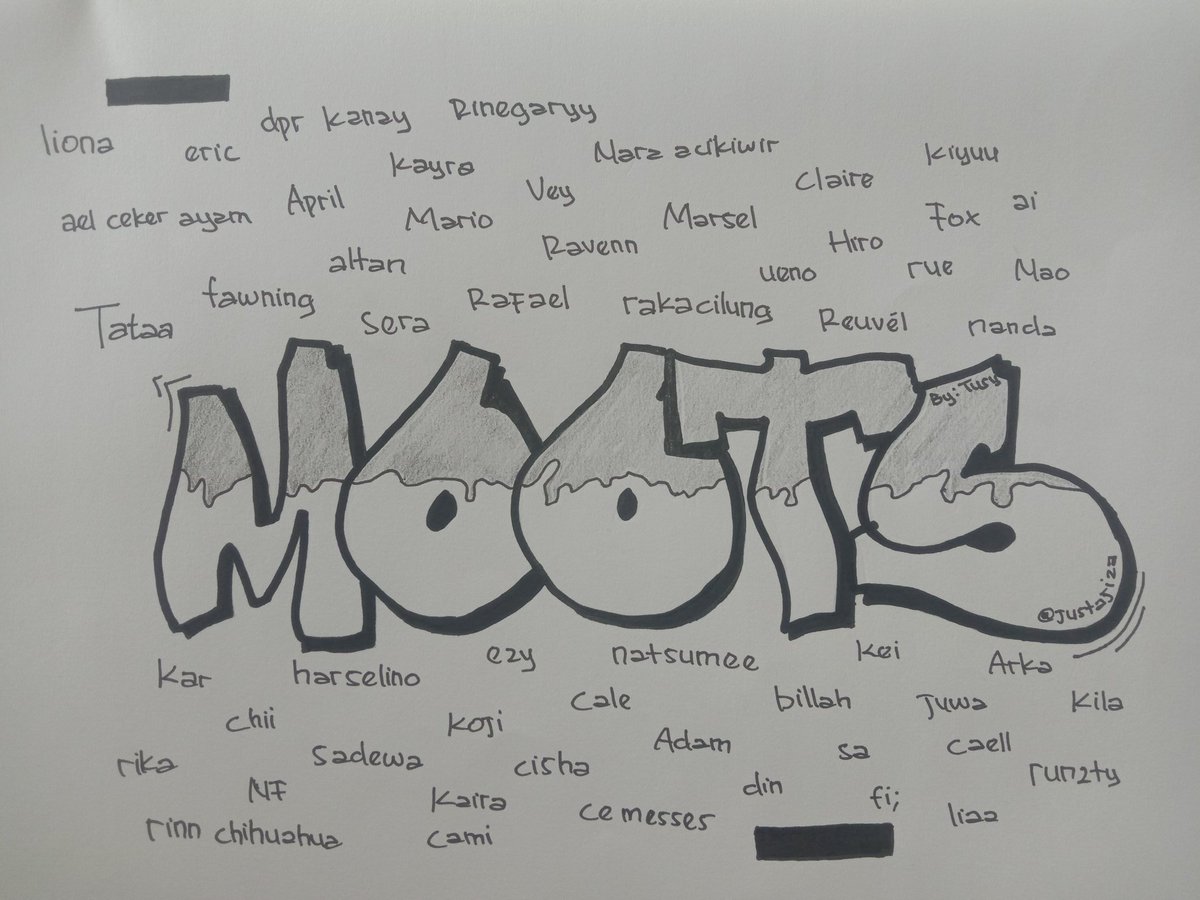 liona
eric
dpr kanay
Rinegaryy
kayra
Nara acikiwir
kiyuu
ael ceker ayam
April
Mario
Vey
Marsel
Claire
Fox
ai
altan
Ravenn
Hiro
ueno
rue
Mao
Tataa
fawning
sera
RaFael
rakacilung
Reuvél
nanda
MOOTS
By: Tury
@justajiza
kar
harselino
ezy
natsumee
kei
Arka
chii
koji
cale
billah
juwa
kila
rika
sadewa
cisha
Adam
sa
caell
NF
kaira
ce messes
din
fi;
runzty
rinn chihuahua
cami
liaa